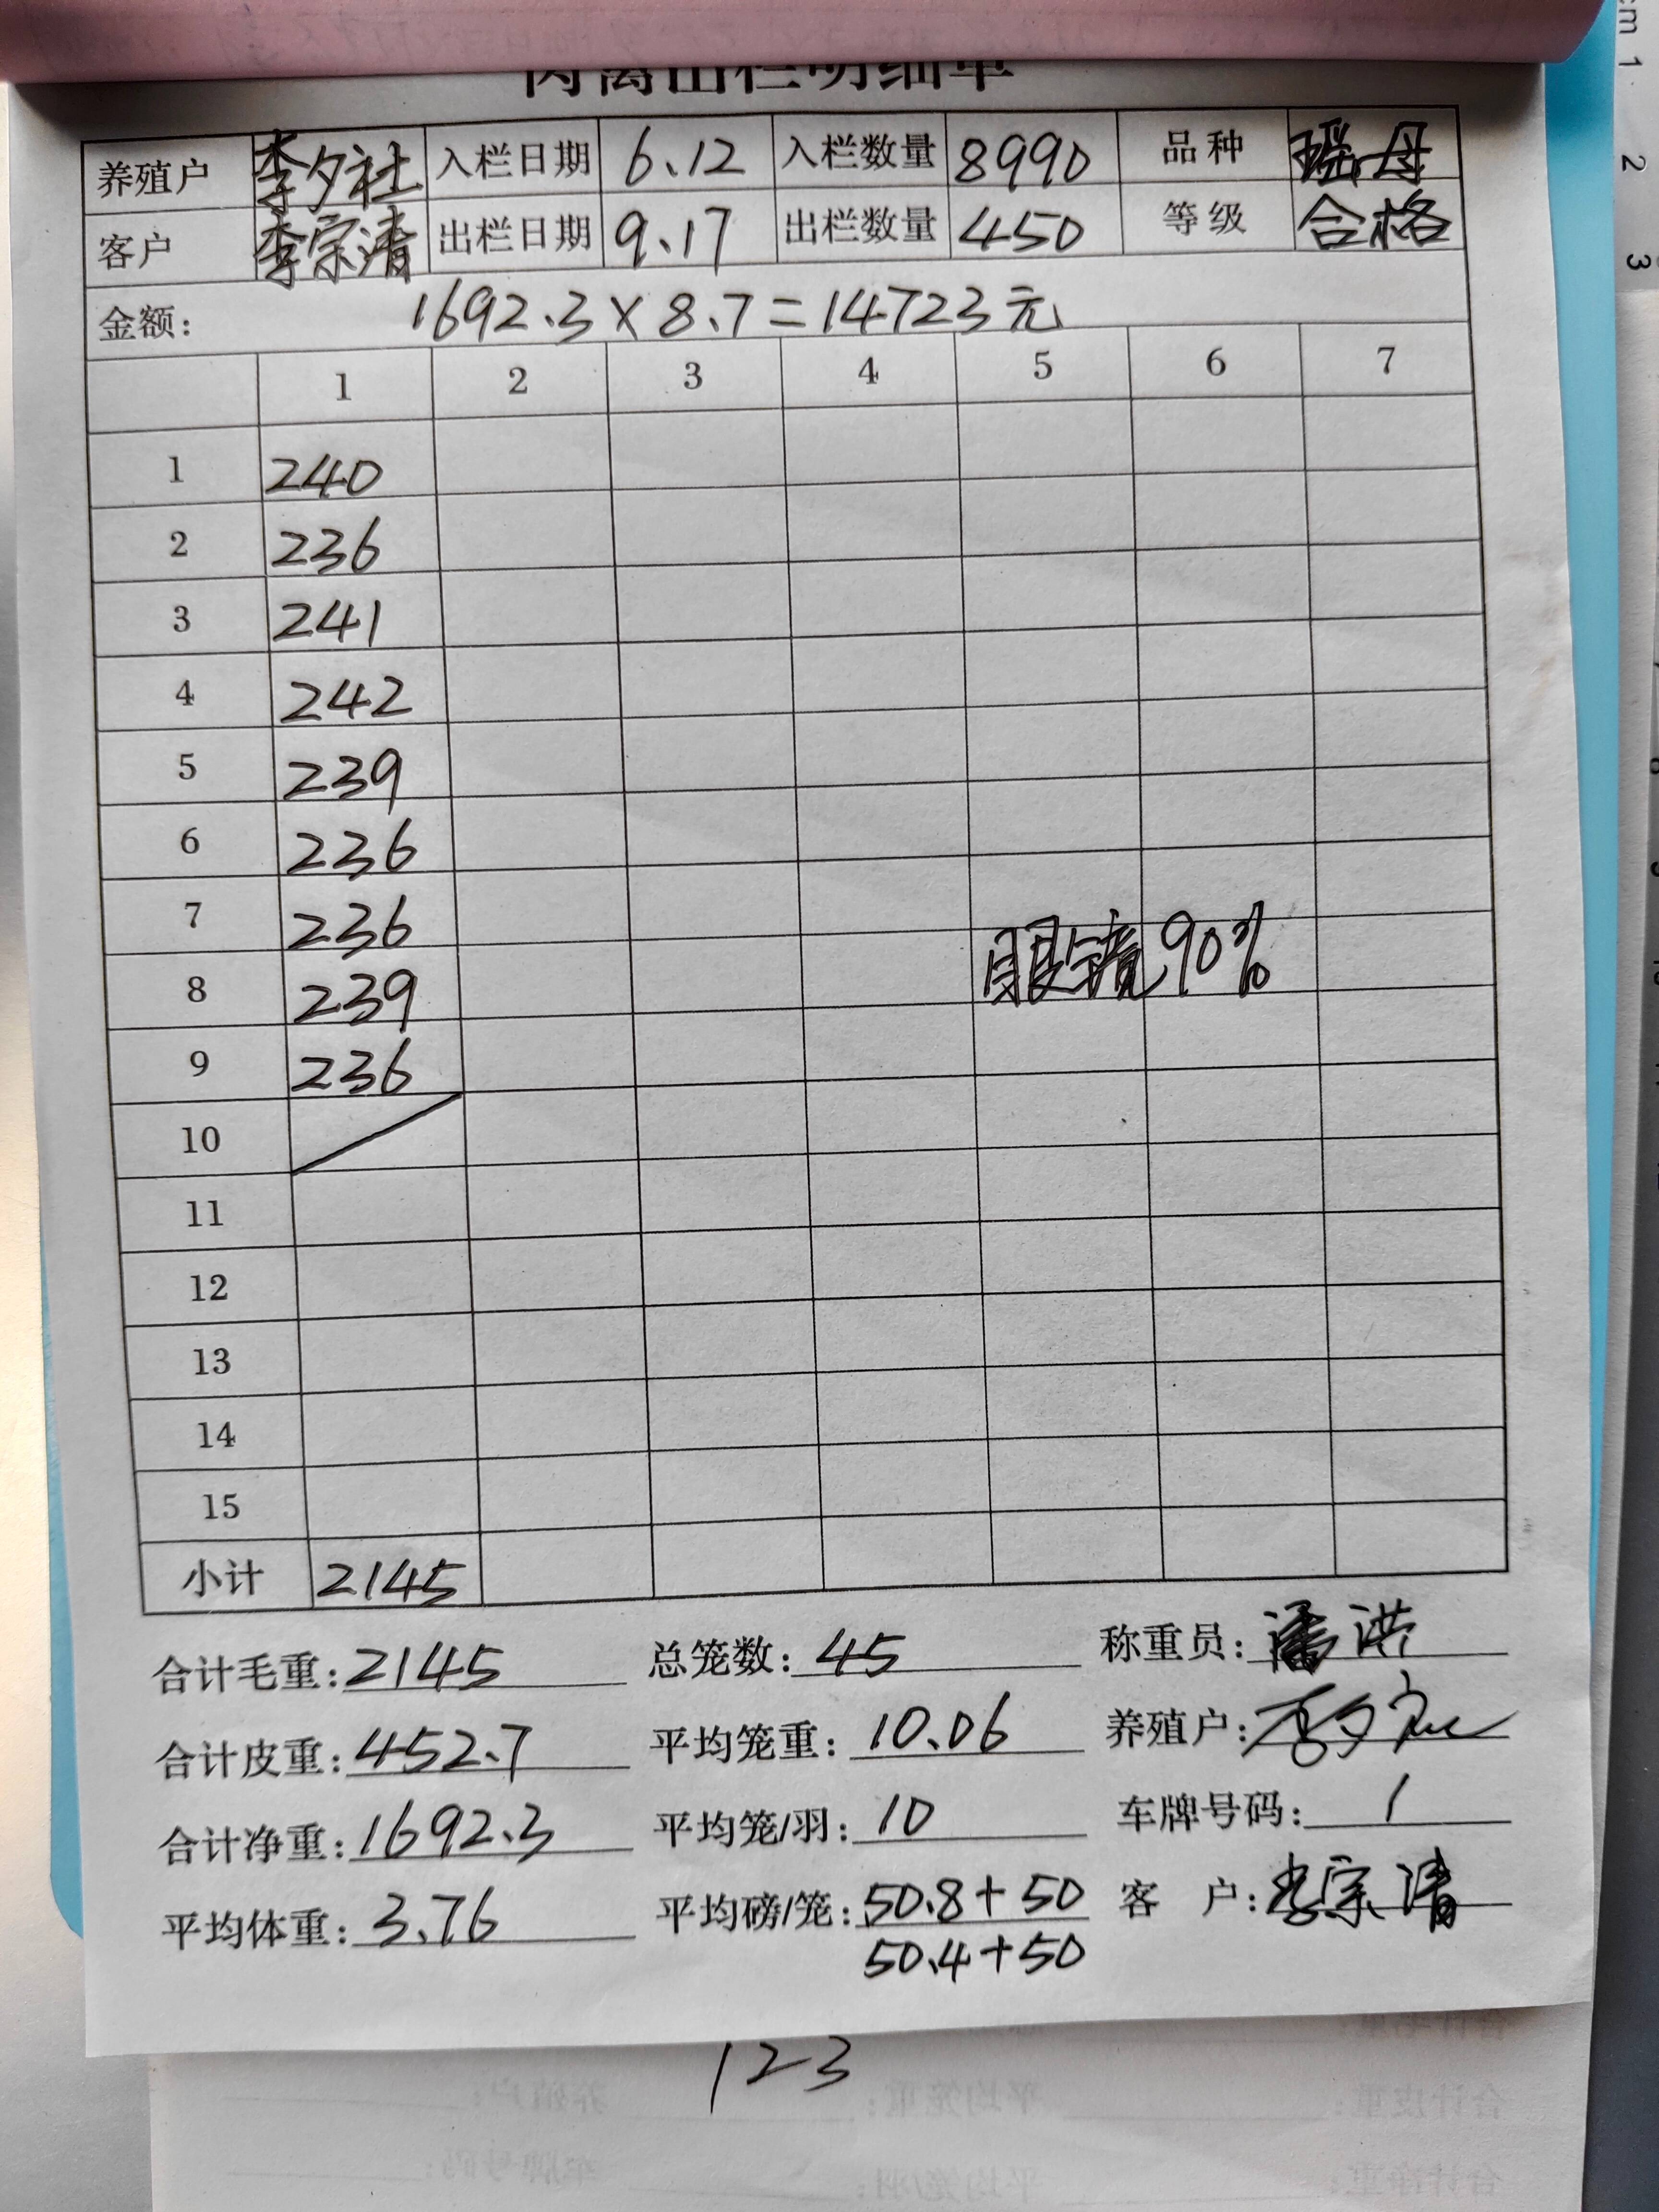 肉禽出栏明细单
养殖户 李夕社 入栏日期 6.12 入栏数量 8990 品种 瑶母
客户 李宗清 出栏日期 9.17 出栏数量 450 等级 合格
金额: 1692.3×8.7=14723元
1 2 3 4 5 6 7
1 240
2 236
3 241
4 242
5 239
6 236
7 236
8 239
眼镜90%
9 236
10
11
12
13
14
15
小计 2145
合计毛重:2145 总笼数:45 称重员:潘洪
合计皮重:452.7 平均笼重:10.06 养殖户:李夕社
合计净重:1692.3 平均笼/羽:10 车牌号码:1
平均体重:3.76 平均磅/笼:50.8+50 客 户:李宗清
50.4+50
123